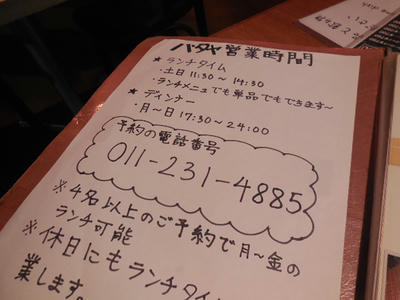 パタヤ営業時間
★ ランチタイム
・土日 11:30 ~ 14:30
・ランチメニュでも単品でもできます~
★ ディンナー
・月~日 17:30 ~ 24:00
予約の電話番号
011-231-4885
※4名以上のご予約で月~金の
ランチ可能
※休日にもランチタイ
業します。